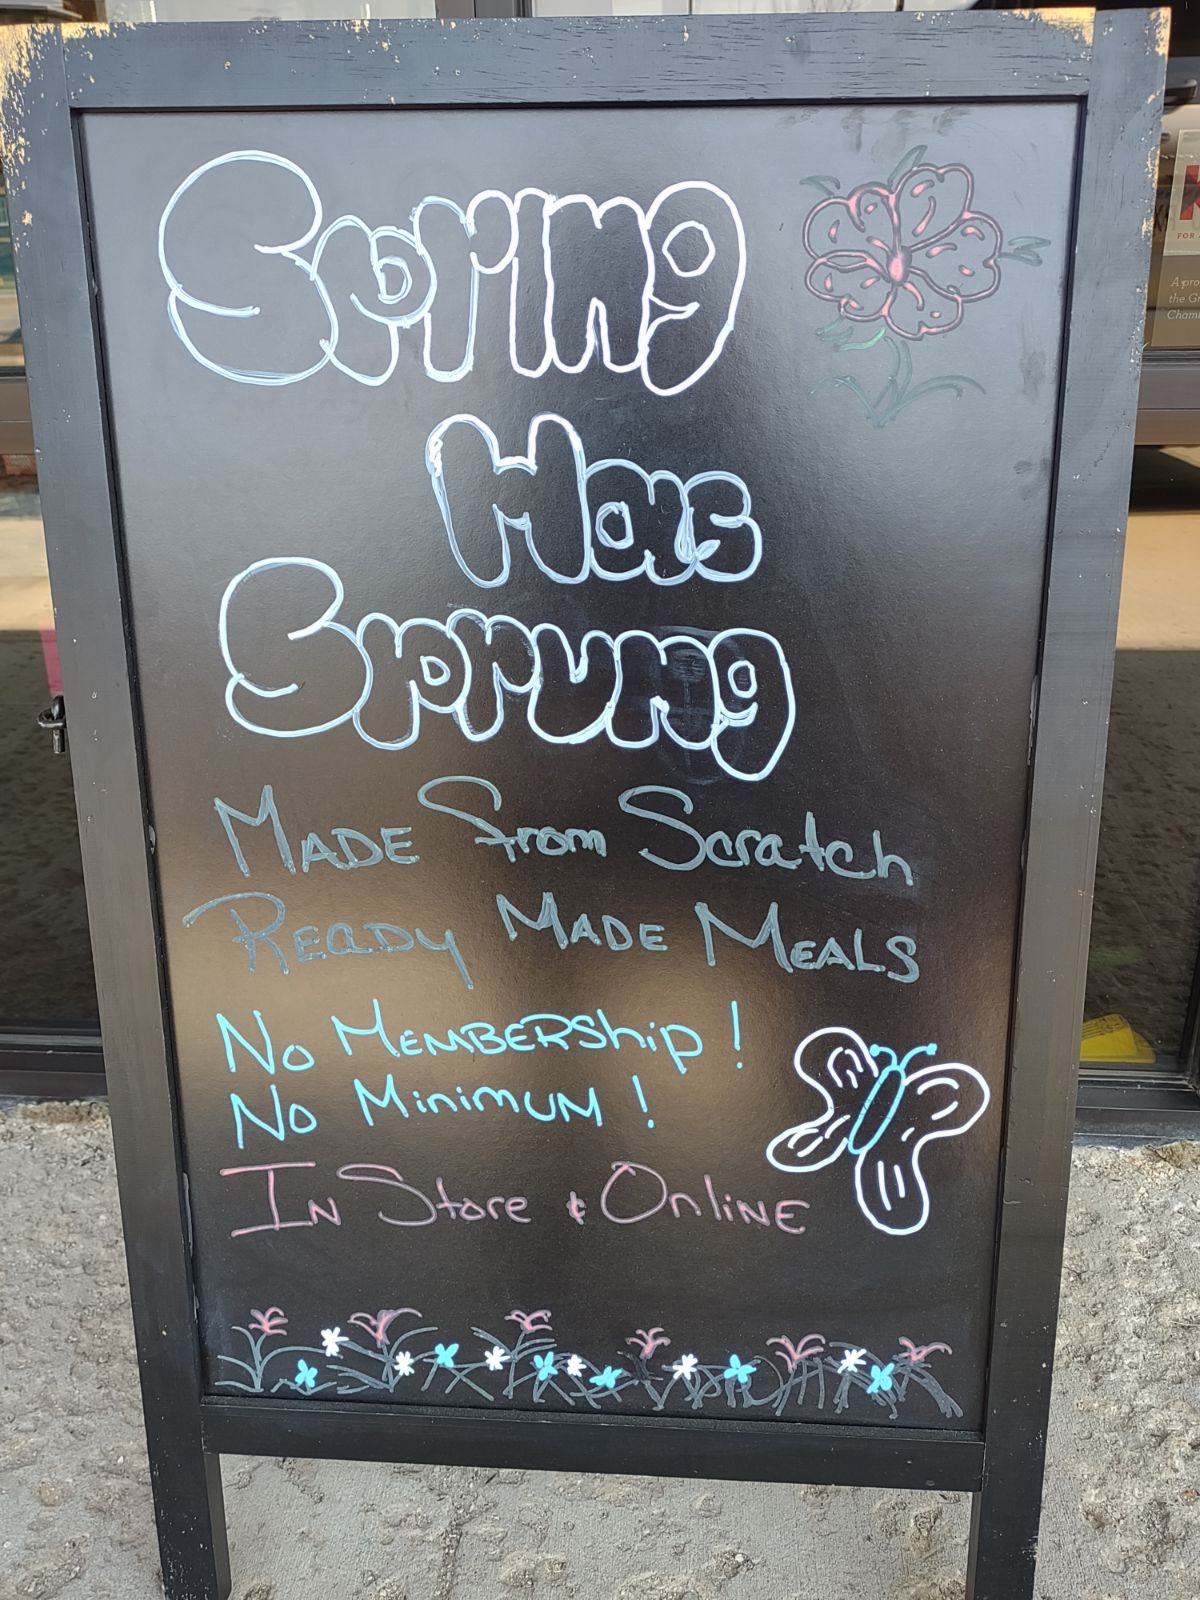 Spring
Has
Sprung
Made From Scratch
Ready Made Meals
No Membership!
No Minimum!
In Store & Online
FOR
the Gr
Cham